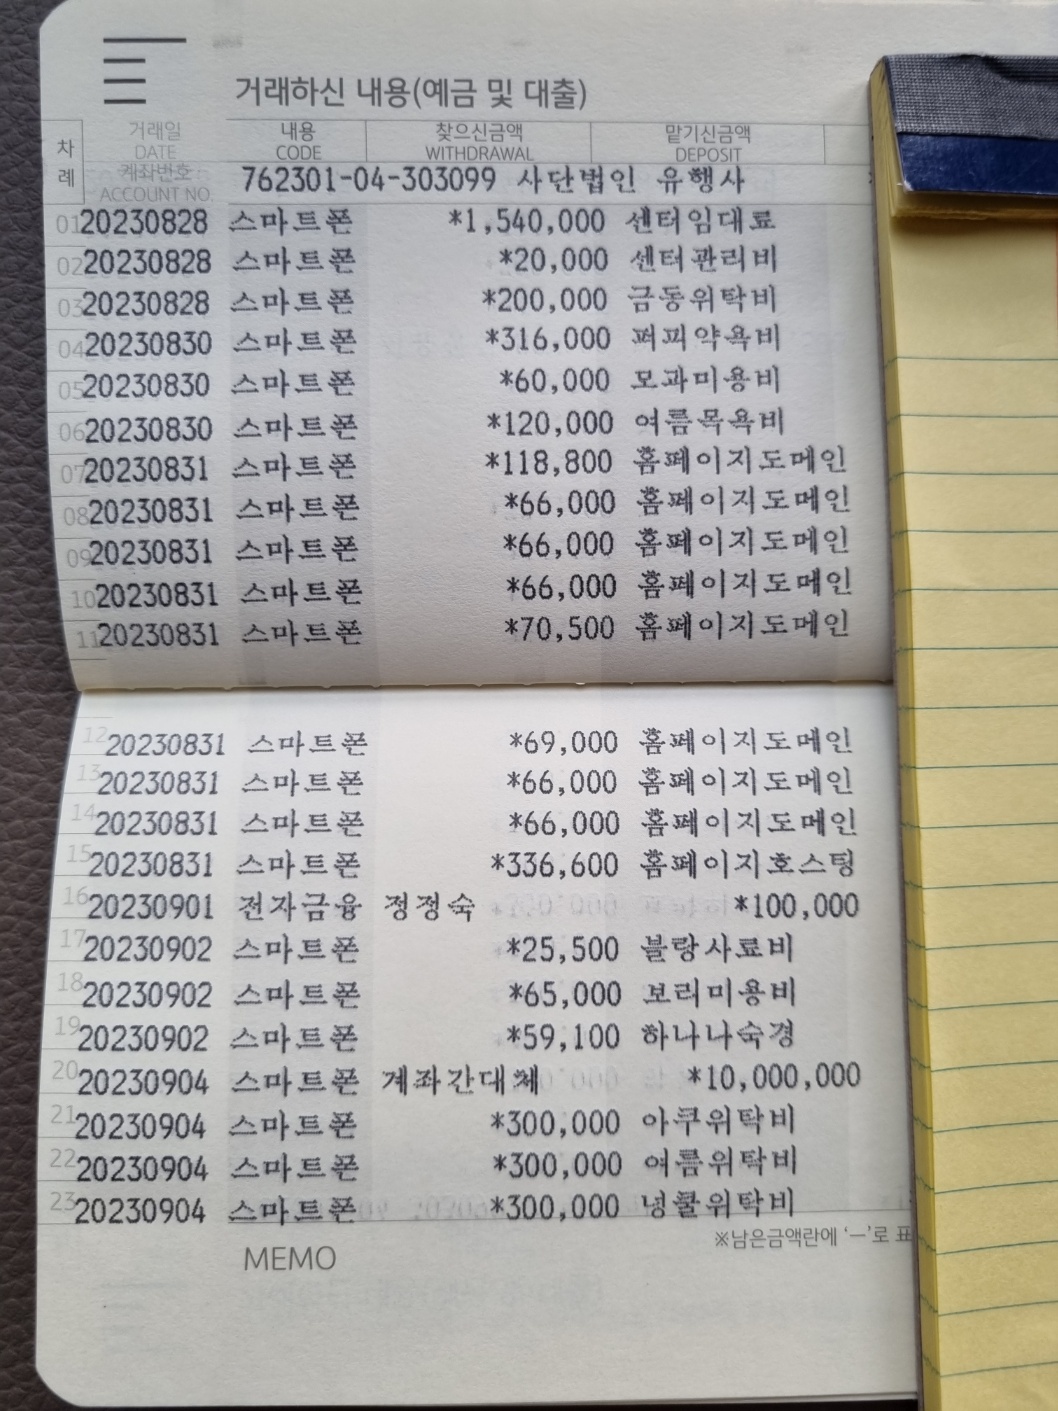 거래하신 내용(예금 및 대출)
차례 거래일 DATE 내용 CODE 찾으신금액 WITHDRAWAL 맡기신금액 DEPOSIT
계좌번호 ACCOUNT NO. 762301-04-303099 사단법인 유행사
01 20230828 스마트폰 *1,540,000 센터임대료
02 20230828 스마트폰 *20,000 센터관리비
03 20230828 스마트폰 *200,000 금동위탁비
04 20230830 스마트폰 *316,000 퍼피약욕비
05 20230830 스마트폰 *60,000 모과미용비
06 20230830 스마트폰 *120,000 여름목욕비
07 20230831 스마트폰 *118,800 홈페이지도메인
08 20230831 스마트폰 *66,000 홈페이지도메인
09 20230831 스마트폰 *66,000 홈페이지도메인
10 20230831 스마트폰 *66,000 홈페이지도메인
11 20230831 스마트폰 *70,500 홈페이지도메인
12 20230831 스마트폰 *69,000 홈페이지도메인
13 20230831 스마트폰 *66,000 홈페이지도메인
14 20230831 스마트폰 *66,000 홈페이지도메인
15 20230831 스마트폰 *336,600 홈페이지호스팅
16 20230901 전자금융 정정숙 *100,000
17 20230902 스마트폰 *25,500 블랑사료비
18 20230902 스마트폰 *65,000 보리미용비
19 20230902 스마트폰 *59,100 하나나숙경
20 20230904 스마트폰 계좌간대체 *10,000,000
21 20230904 스마트폰 *300,000 아쿠위탁비
22 20230904 스마트폰 *300,000 여름위탁비
23 20230904 스마트폰 *300,000 넝쿨위탁비
※남은금액란에 '—'로 표
MEMO